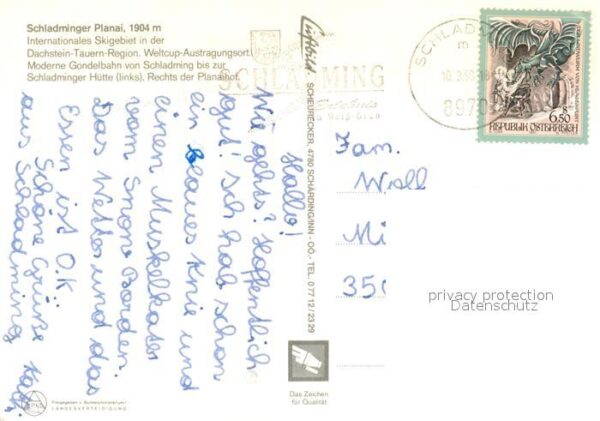 Schladminger Planai, 1904 m
Internationales Skigebiet in der
Dachstein-Tauern-Region. Weltcup-Austragungsort.
Moderne Gondelbahn von Schladming bis zur
Schladminger Hütte (links), Rechts der Planaihof.
Hallo!
Wie gehts? Hoffentlich
gut! Ich hab schon
ein blaues Knie und
einen Muskelkater
vom Snow Borden.
Das Wetter und das
Essen ist O.K
Schöne Grüße
aus Schladming
LANDESVERTEIDIGUNG
Luftbild
SCHEURECKER, 4780 SCHÄRDING/INN - OÖ - TEL. 0 77 12 / 23 29
Das Zeichen
für Qualität
SCHLADMING
8970
6.50
REPUBLIK ÖSTERREICH
Fam.
Woll
Mi
350
privacy protection
Datenschutz